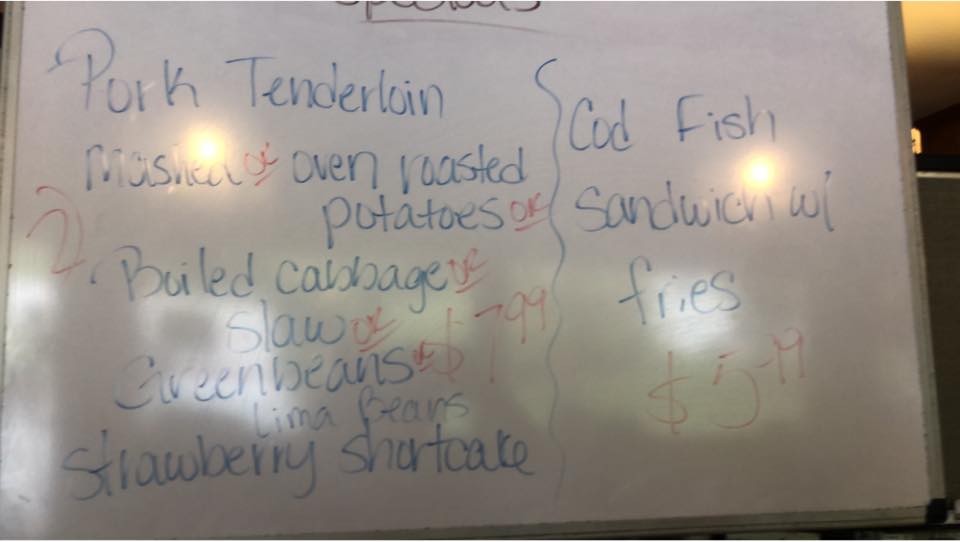 Specials
Pork Tenderloin
Mashed or oven roasted
potatoes or
2
Boiled cabbage or
slaw or
$7.99
Greenbeans or
Lima Beans
Strawberry shortcake
Cod Fish
Sandwich w/
fries
$5.99